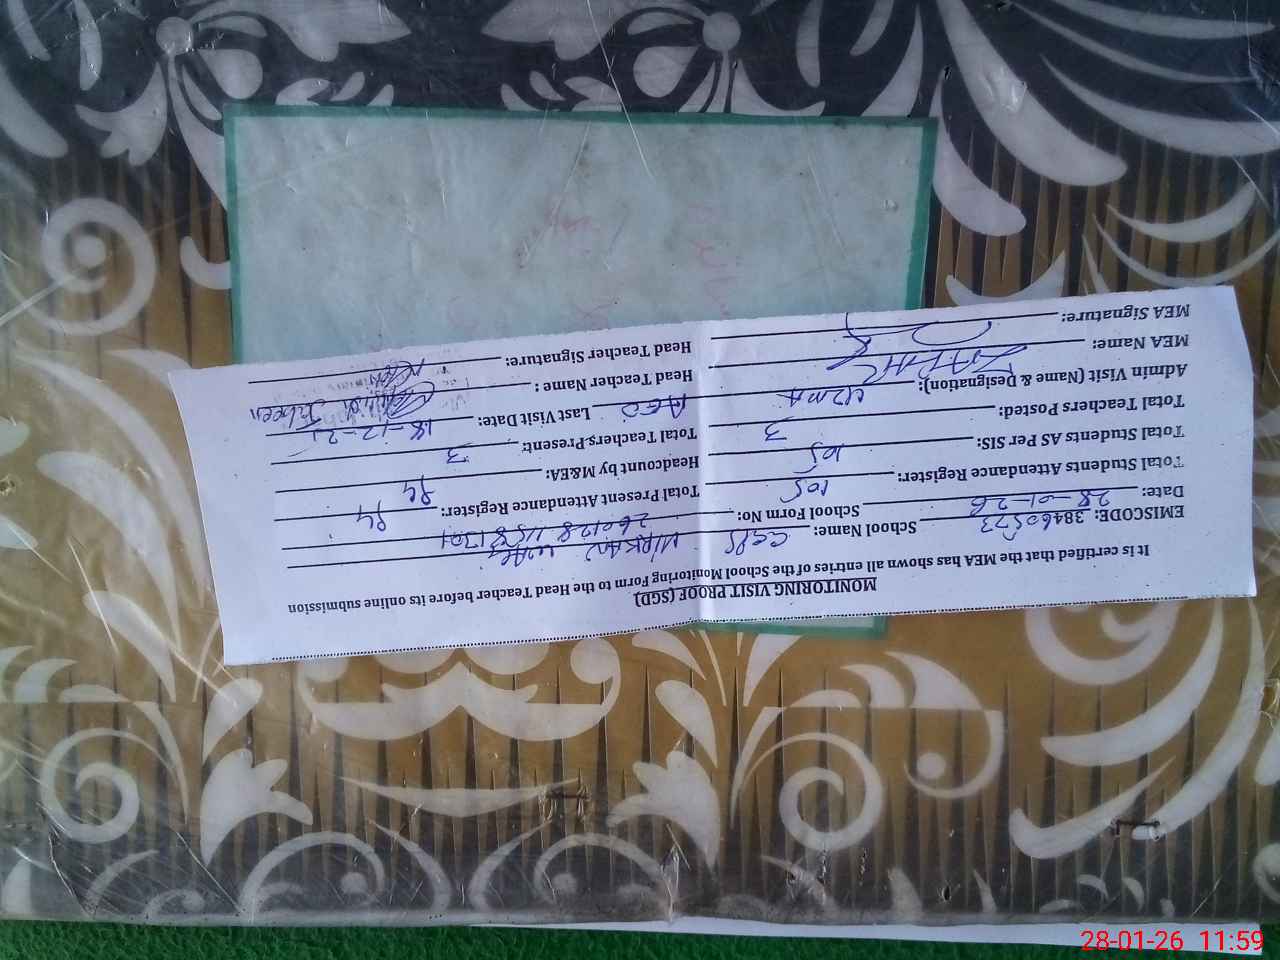 MONITORING VISIT PROOF (SGD)
It is certified that the MEA has shown all entries of the School Monitoring Form to the Head Teacher before its online submission
EMISCODE: 38460573 School Name: GGPS WARA
Date: 28-01-26 School Form No: 260128 11581301
Total Students Attendance Register: 105 Total Present Attendance Register: 94
Total Students AS Per SIS: 105 Headcount by M&EA: 94
Total Teachers Posted: 3 Total Teachers Present: 3
Admin Visit (Name & Designation): UZMA AEO Last Visit Date: 18-12-25
MEA Name: ZAFAR Head Teacher Name :
MEA Signature: Head Teacher Signature:
28-01-26 11:59